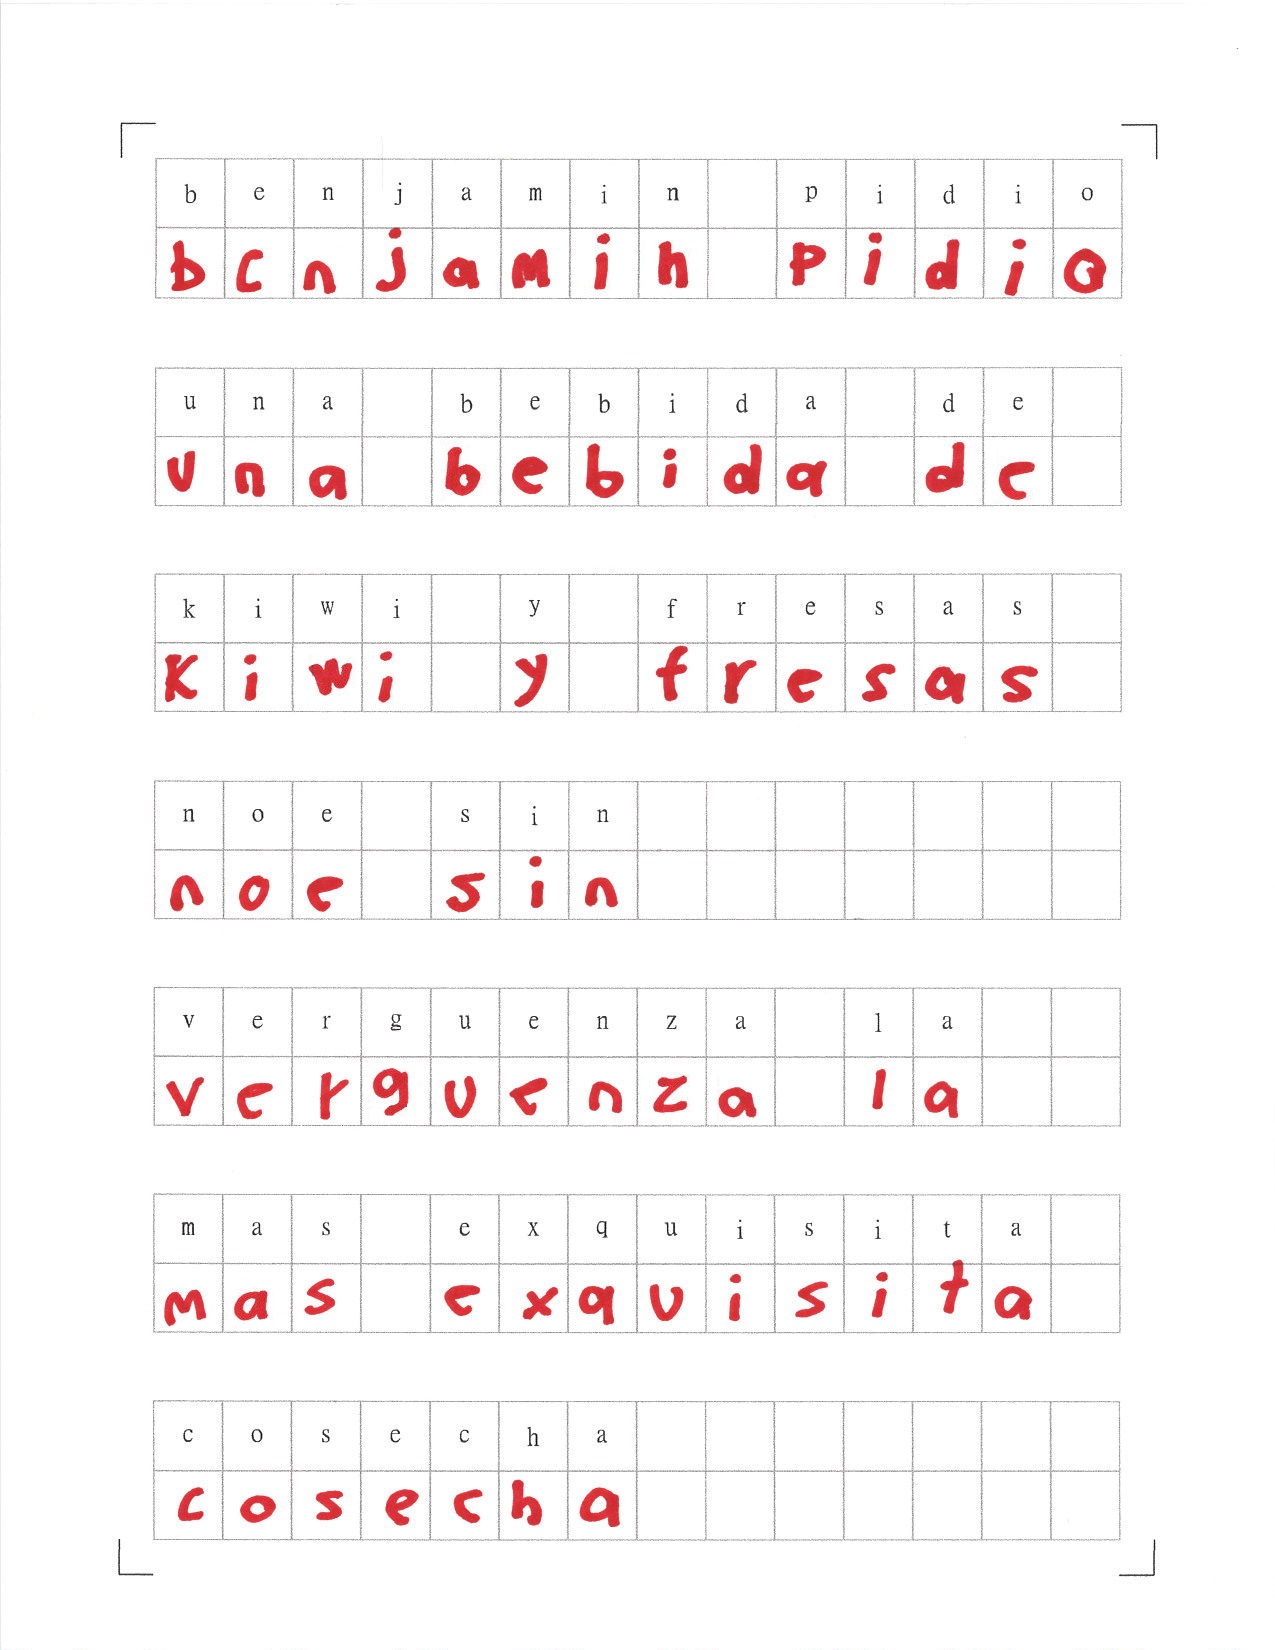 b e n j a m i n p i d i o
b c n j a m i h p i d i o
u n a b e b i d a d e
u n a b e b i d a d e
k i w i y f r e s a s
K i w i y f r e s a s
n o e s i n
n o e s i n
v e r g u e n z a l a
v e r g u e n z a l a
m a s e x q u i s i t a
m a s e x q u i s i t a
c o s e c h a
c o s e c h a